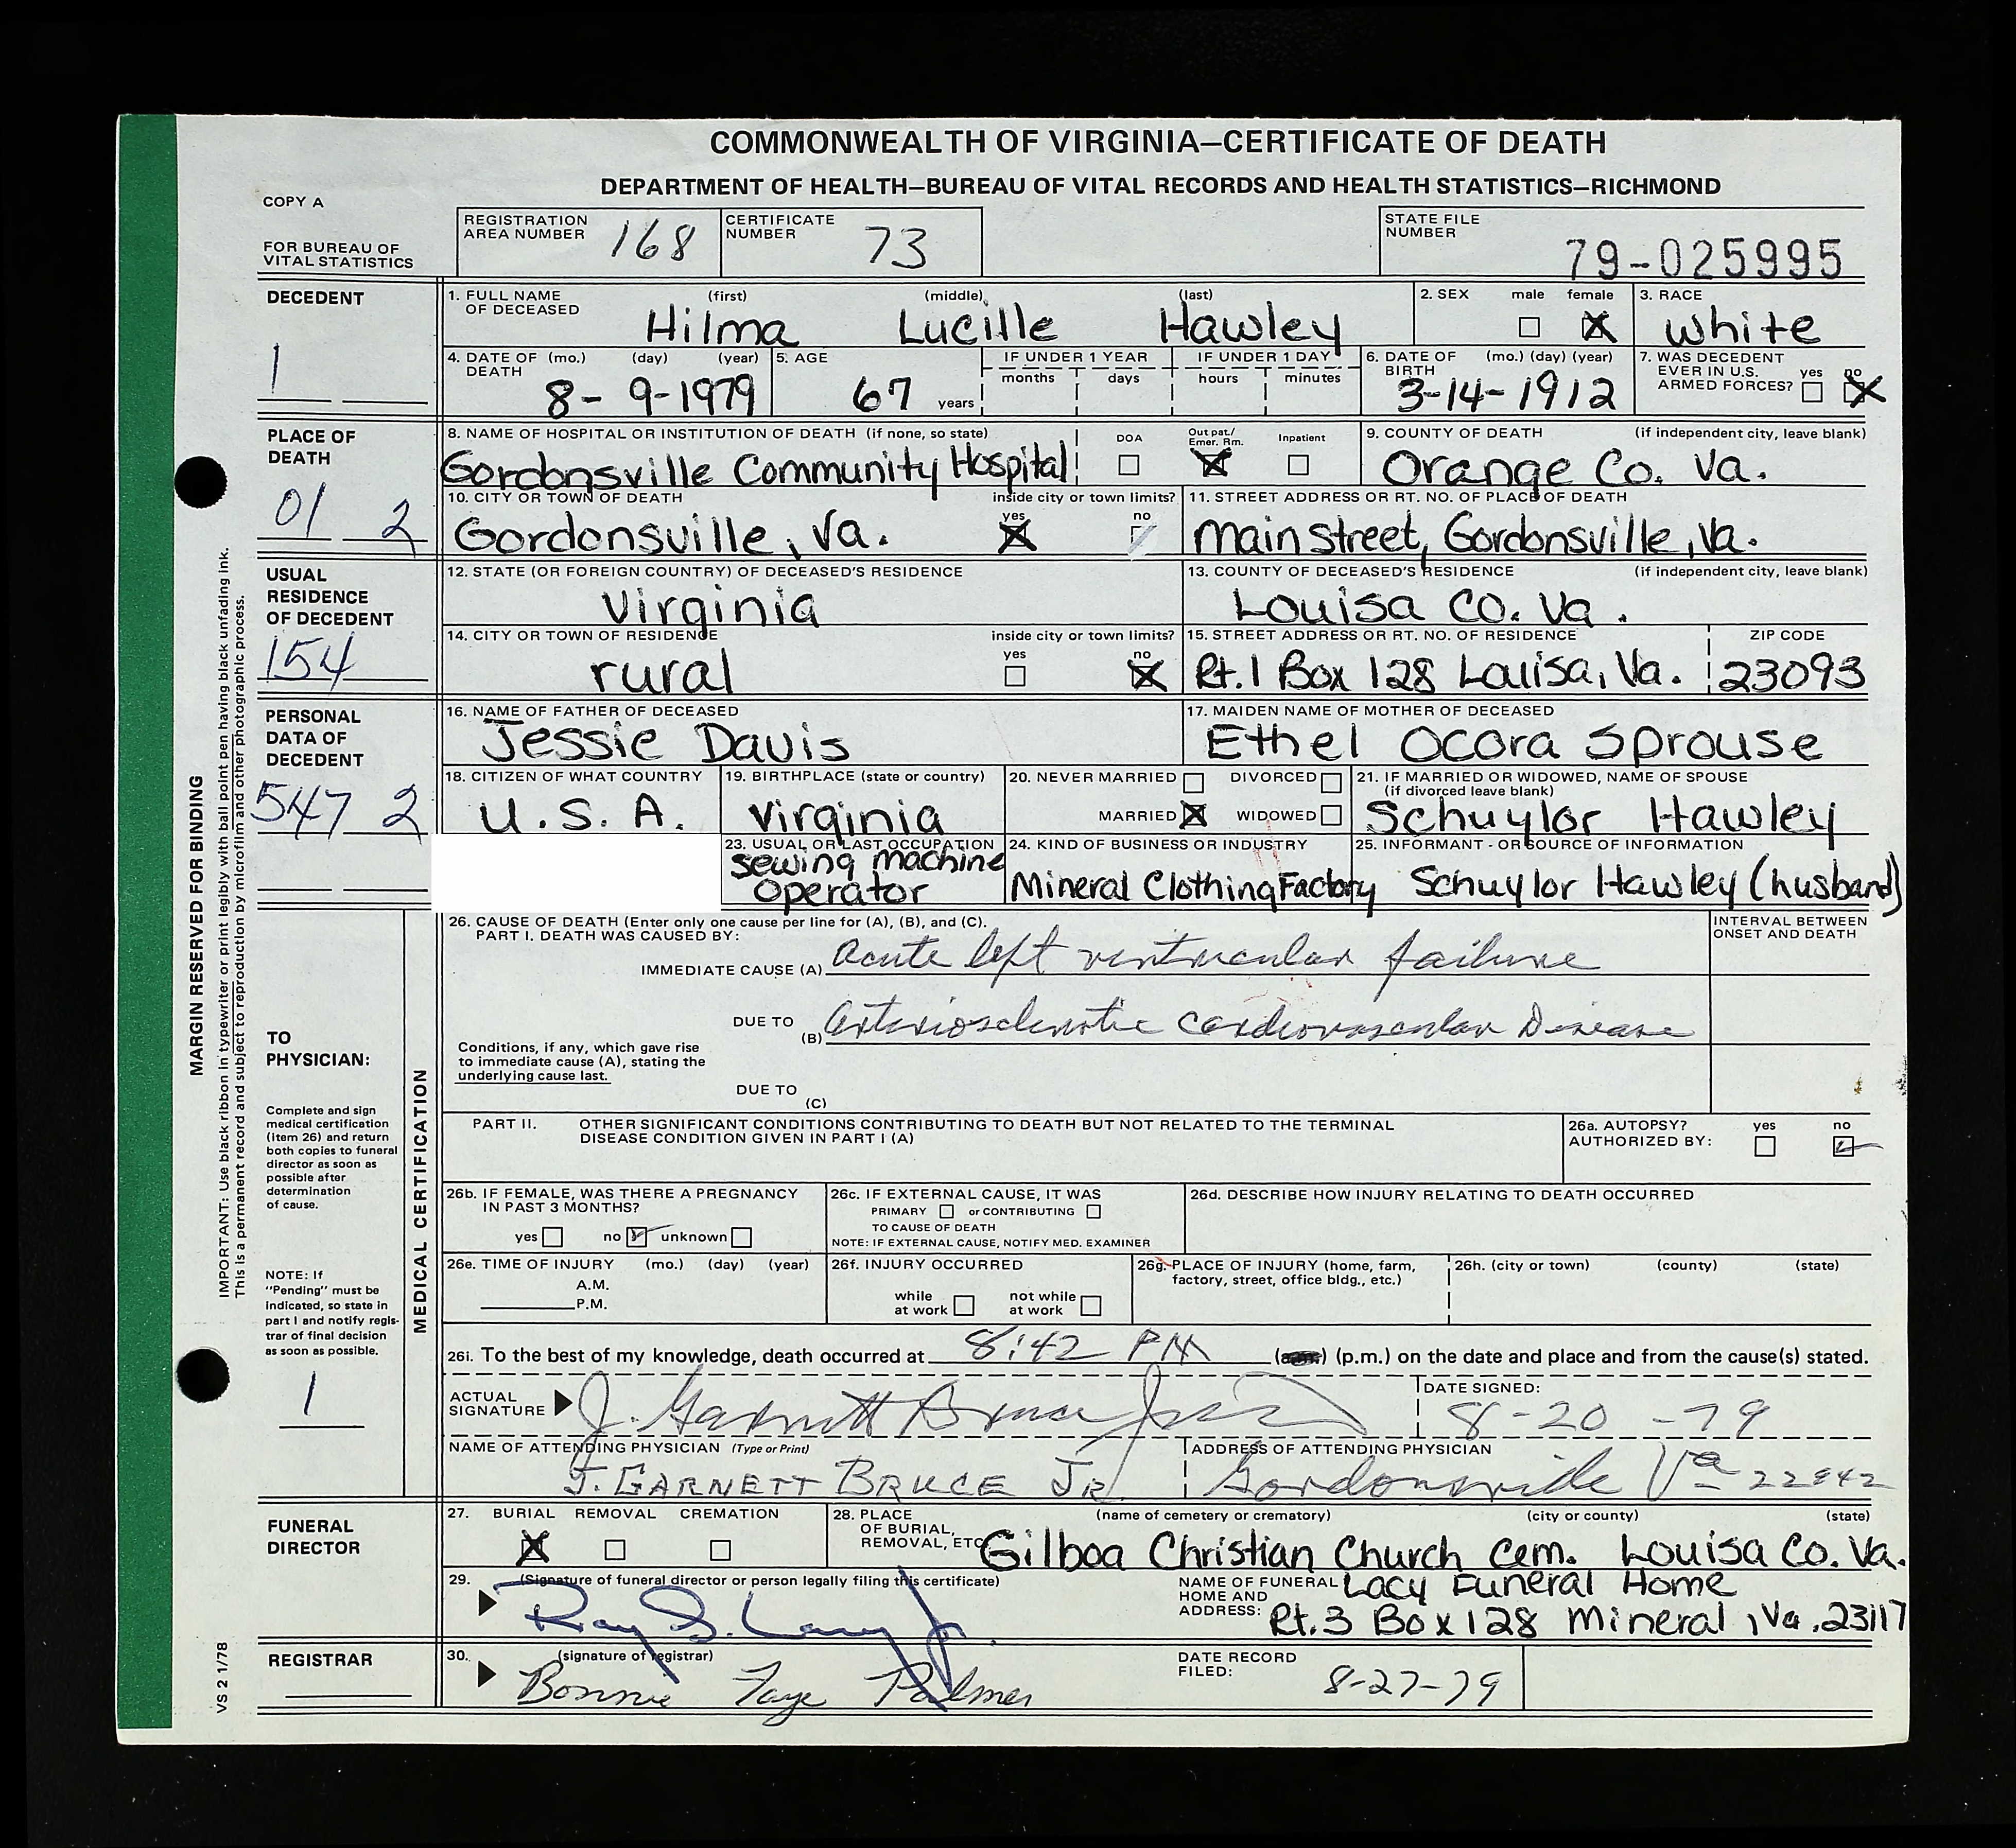 COMMONWEALTH OF VIRGINIA—CERTIFICATE OF DEATH
DEPARTMENT OF HEALTH—BUREAU OF VITAL RECORDS AND HEALTH STATISTICS—RICHMOND
COPY A
FOR BUREAU OF VITAL STATISTICS
REGISTRATION AREA NUMBER 168
CERTIFICATE NUMBER 73
STATE FILE NUMBER 79-025995
DECEDENT
1
1. FULL NAME OF DECEASED (first) (middle) (last)
Hilma Lucille Hawley
2. SEX male female X
3. RACE white
4. DATE OF DEATH (mo.) (day) (year)
8- 9-1979
5. AGE 67 years
IF UNDER 1 YEAR months days
IF UNDER 1 DAY hours minutes
6. DATE OF BIRTH (mo.) (day) (year)
3-14-1912
7. WAS DECEDENT EVER IN U.S. ARMED FORCES? yes no X
PLACE OF DEATH
01 2
8. NAME OF HOSPITAL OR INSTITUTION OF DEATH (if none, so state)
Gordonsville Community Hospital
DOA Out pat./ Emer. Rm. X Inpatient
9. COUNTY OF DEATH (if independent city, leave blank)
Orange Co. Va.
10. CITY OR TOWN OF DEATH inside city or town limits? yes X no
Gordonsville, Va.
11. STREET ADDRESS OR RT. NO. OF PLACE OF DEATH
Main Street, Gordonsville, Va.
USUAL RESIDENCE OF DECEDENT
154
12. STATE (OR FOREIGN COUNTRY) OF DECEASED'S RESIDENCE
Virginia
13. COUNTY OF DECEASED'S RESIDENCE (if independent city, leave blank)
Louisa Co. Va.
14. CITY OR TOWN OF RESIDENCE inside city or town limits? yes no X
rural
15. STREET ADDRESS OR RT. NO. OF RESIDENCE ZIP CODE
Rt. 1 Box 128 Louisa, Va. 23093
PERSONAL DATA OF DECEDENT
547 2
16. NAME OF FATHER OF DECEASED
Jessie Davis
17. MAIDEN NAME OF MOTHER OF DECEASED
Ethel Ocora Sprouse
18. CITIZEN OF WHAT COUNTRY
U.S.A.
19. BIRTHPLACE (state or country)
Virginia
20. NEVER MARRIED DIVORCED
MARRIED X WIDOWED
21. IF MARRIED OR WIDOWED, NAME OF SPOUSE (if divorced leave blank)
Schuylor Hawley
23. USUAL OR LAST OCCUPATION
sewing machine operator
24. KIND OF BUSINESS OR INDUSTRY
Mineral Clothing Factory
25. INFORMANT - OR SOURCE OF INFORMATION
Schuylor Hawley (husband)
MARGIN RESERVED FOR BINDING
IMPORTANT: Use black ribbon in typewriter or print legibly with ball point pen having black unfading ink.
This is a permanent record and subject to reproduction by microfilm and other photographic process.
VS 2 1/78
TO PHYSICIAN:
Complete and sign medical certification (Item 26) and return both copies to funeral director as soon as possible after determination of cause.
NOTE: If "Pending" must be indicated, so state in part I and notify registrar of final decision as soon as possible.
1
MEDICAL CERTIFICATION
26. CAUSE OF DEATH (Enter only one cause per line for (A), (B), and (C).
PART I. DEATH WAS CAUSED BY:
INTERVAL BETWEEN ONSET AND DEATH
IMMEDIATE CAUSE (A) Acute left ventricular failure
DUE TO (B) Arteriosclerotic Cardiovascular Disease
Conditions, if any, which gave rise to immediate cause (A), stating the underlying cause last.
DUE TO (C)
PART II. OTHER SIGNIFICANT CONDITIONS CONTRIBUTING TO DEATH BUT NOT RELATED TO THE TERMINAL DISEASE CONDITION GIVEN IN PART I (A)
26a. AUTOPSY? yes no
AUTHORIZED BY:
26b. IF FEMALE, WAS THERE A PREGNANCY IN PAST 3 MONTHS?
yes no unknown
26c. IF EXTERNAL CAUSE, IT WAS
PRIMARY or CONTRIBUTING
TO CAUSE OF DEATH
NOTE: IF EXTERNAL CAUSE, NOTIFY MED. EXAMINER
26d. DESCRIBE HOW INJURY RELATING TO DEATH OCCURRED
26e. TIME OF INJURY (mo.) (day) (year)
A.M.
P.M.
26f. INJURY OCCURRED
while at work not while at work
26g. PLACE OF INJURY (home, farm, factory, street, office bldg., etc.)
26h. (city or town) (county) (state)
26i. To the best of my knowledge, death occurred at 8:42 PM (p.m.) on the date and place and from the cause(s) stated.
ACTUAL SIGNATURE J. Garnett Bruce Jr
DATE SIGNED: 8-20-79
NAME OF ATTENDING PHYSICIAN (Type or Print)
J. GARNETT BRUCE JR.
ADDRESS OF ATTENDING PHYSICIAN
Gordonsville Va 22942
FUNERAL DIRECTOR
27. BURIAL X REMOVAL CREMATION
28. PLACE OF BURIAL, REMOVAL, ETC. (name of cemetery or crematory) (city or county) (state)
Gilboa Christian Church Cem. Louisa Co. Va.
29. (Signature of funeral director or person legally filing this certificate)
Ray S. Lacy Jr.
NAME OF FUNERAL HOME AND ADDRESS: Lacy Funeral Home
Rt. 3 Box 128 Mineral, Va. 23117
REGISTRAR
30. (signature of registrar)
Bonnie Faye Palmer
DATE RECORD FILED: 8-27-79